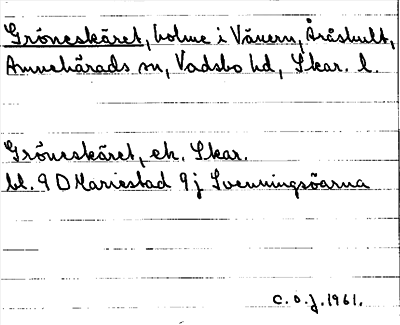 Gröneskäret, holme i Vänern, Åråshult,
Amnehärads sn, Vadsbo hd, Skar. l.
Gröneskäret, ek. Skar.
bl. 9 D Mariestad 9 j Svenningsöarna
C. O. J. 1961.